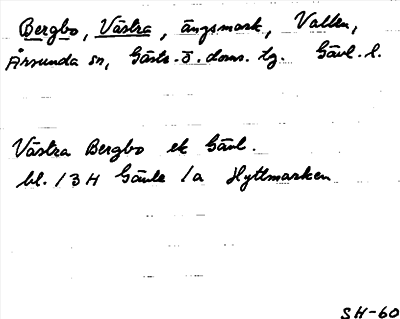 Bergbo, Västra, ängsmark, Vallen,
Årsunda sn, Gästr. ö. doms. tg. Gävl. l.
Västra Bergbo ek Gävl.
bl. 13H Gävle 1a Hyttmarken
SH-60